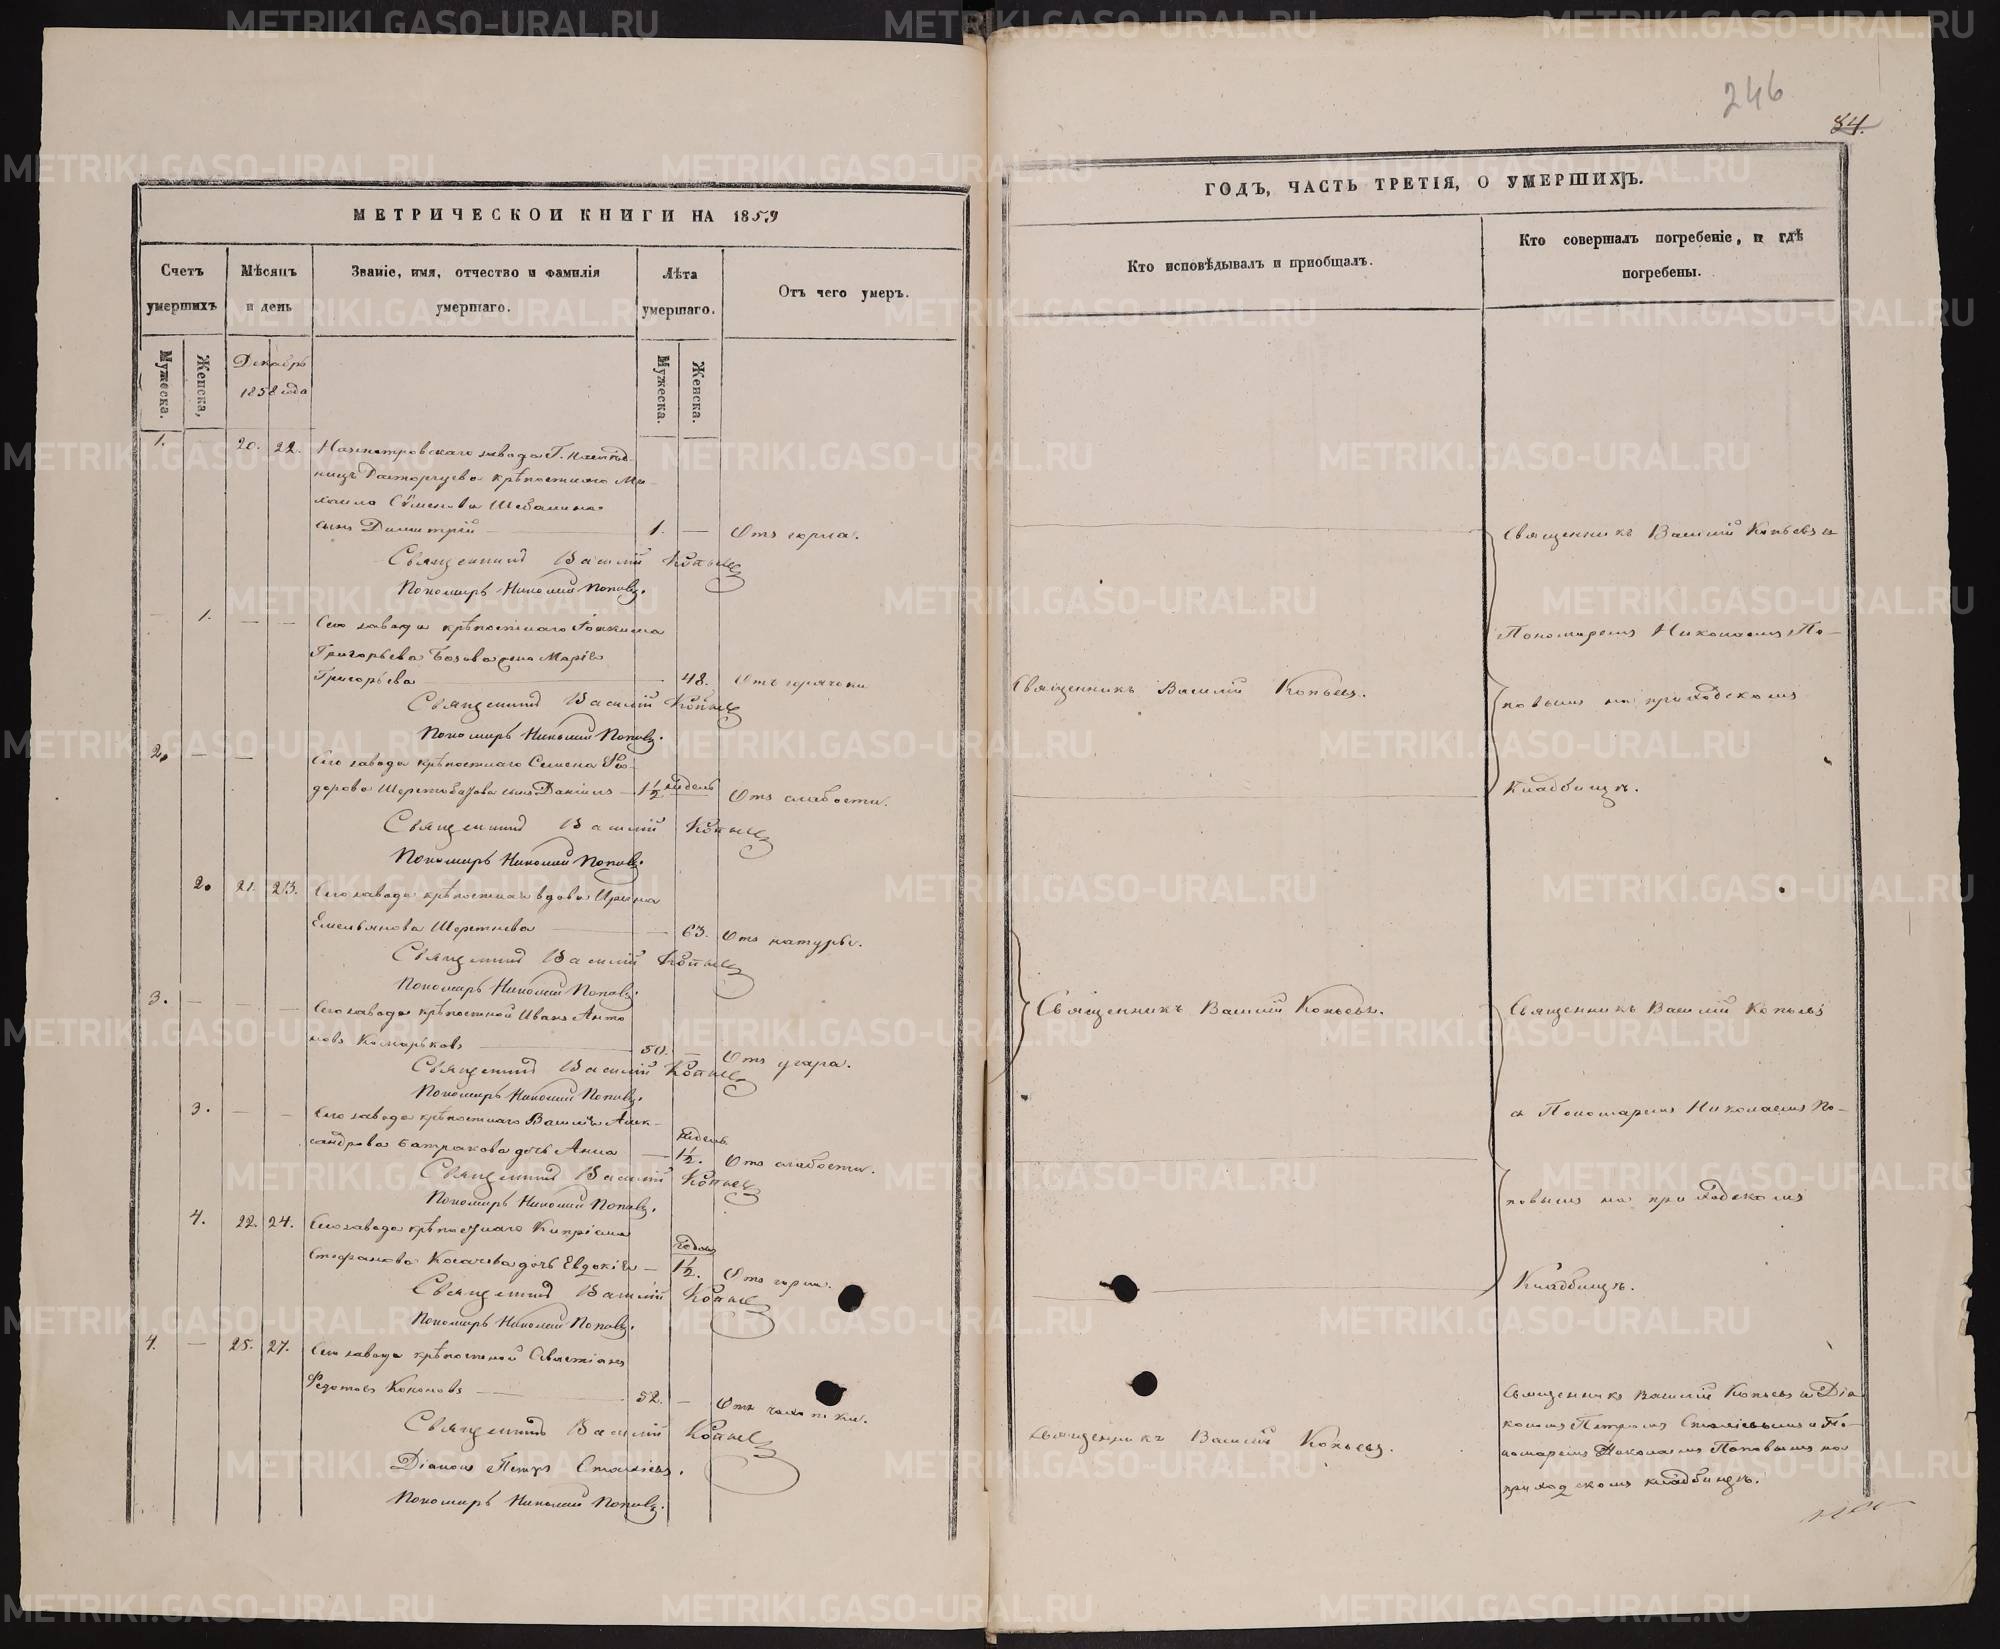 246
84.
МЕТРИЧЕСКОЙ КНИГИ НА 1859
Счетъ умершихъ
Мѣсяцъ и день
Званіе, имя, отчество и фамилія умершаго.
Лѣта умершаго.
Отъ чего умеръ.
Мужеска.
Женска,
Декабрь 1858 года
Мужеска.
Женска.
1. 20. 22. завода Г. наслѣд-
ницъ Расторгуева крѣпостнаго Ми-
хаила Сѵменова Шебалина
сынъ Димитрій 1. — Отъ горла.
Священникъ Василій Копьевъ
Пономарь Николай Поповъ.
— 1. — — Сего завода крѣпостнаго
Григорьева жена Марія
Григорьева 48. Отъ горячки
Священникъ Василій Копьевъ
Пономарь Николай Поповъ.
2. — — Сего завода крѣпостнаго Семена Ѳео-
дорова сынъ Даніилъ — 1½ недѣль Отъ слабости.
Священникъ Василій Копьевъ
Пономарь Николай Поповъ.
2. 21. 23. Сего завода крѣпостная вдова Ирина
Емельянова — 63. Отъ натуры.
Священникъ Василій Копьевъ
Пономарь Николай Поповъ.
3. — — — Сего завода крѣпостной Иванъ Анто
новъ Комарьковъ 50. — Отъ угара.
Священникъ Василій Копьевъ
Пономарь Николай Поповъ.
3. — — Сего завода крѣпостнаго Василія Алек-
сандрова Батракова дочь Анна — недѣль 1½. Отъ слабости.
Священникъ Василій Копьевъ
Пономарь Николай Поповъ.
4. 22. 24. Сего завода крѣпостнаго Кипріана
Стефанова дочь Евдокія — годъ 1½. Отъ горла.
Священникъ Василій Копьевъ
Пономарь Николай Поповъ.
4. — 25. 27. Сего завода крѣпостной
Ѳедотовъ Кононовъ 52. — Отъ чахотки.
Священникъ Василій Копьевъ
Діаконъ Петръ
Пономарь Николай Поповъ.
ГОДЪ, ЧАСТЬ ТРЕТІЯ, О УМЕРШИХЪ.
Кто исповѣдывалъ и пріобщалъ.
Кто совершалъ погребеніе, и гдѣ погребены.
Священникъ Василій Копьевъ и
Пономаремъ Николаемъ По-
Священникъ Василій Копьевъ.
повымъ на приходскомъ
Кладбищѣ.
Священникъ Василій Копьевъ.
Священникъ Василій Копьевъ
съ Пономаремъ Николаемъ По-
повымъ на приходскомъ
Кладбищѣ.
Священникъ Василій Копьевъ.
Священникъ Василій Копьевъ съ Діа
кономъ Петромъ и По-
номаремъ Николаемъ Поповымъ на
приходскомъ кладбищѣ.
METRIKI.GASO-URAL.RU